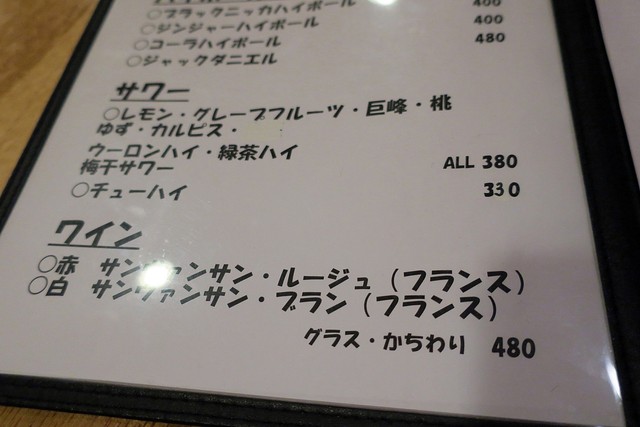 ○ブラックニッカハイボール 400
○ジンジャーハイボール 400
○コーラハイボール 480
○ジャックダニエル
サワー
○レモン・グレープフルーツ・巨峰・桃
ゆず・カルピス・
ウーロンハイ・緑茶ハイ
梅干サワー ALL 380
○チューハイ 330
ワイン
○赤 サンヴァンサン・ルージュ（フランス）
○白 サンヴァンサン・ブラン（フランス）
グラス・かちわり 480